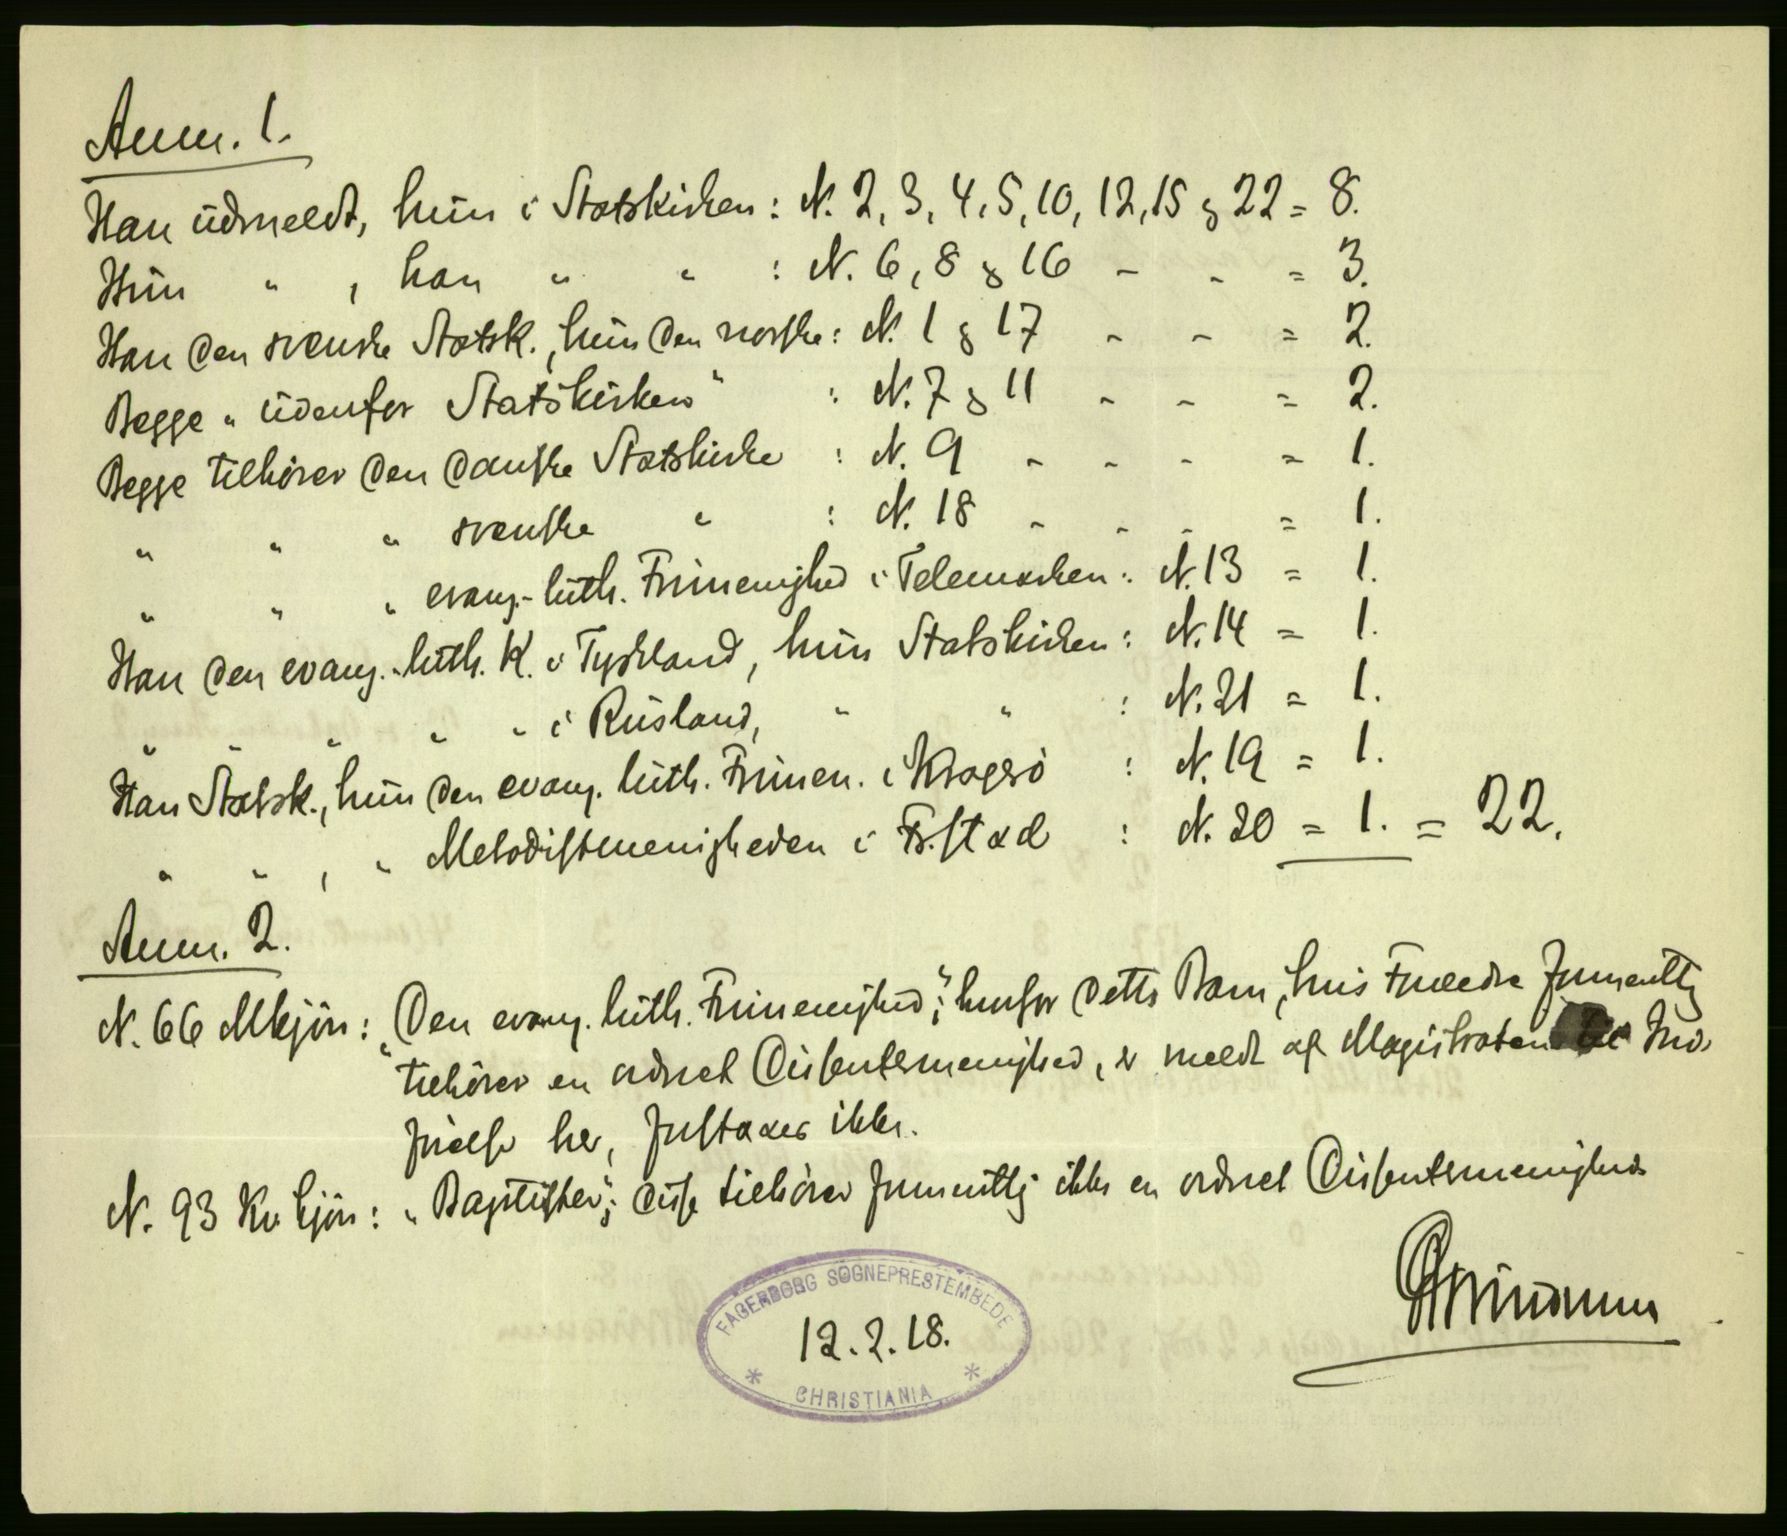 Anm. 1.
Han udmeldt, hun i Statskirken: N. 2, 3, 4, 5, 10, 12, 15 & 22 = 8.
Hun " , han " " : N. 6, 8 & 16 - - = 3.
Han den svenske Statsk., hun den norske: N. 1 & 17 - - = 2.
Begge "udenfor Statskirken" : N. 7 & 11 - - = 2.
Begge tilhører den danske Statskirke : N. 9 - - - = 1.
" " " svenske " : N. 18 - - - = 1.
" " " evang.-luth. Frimenighed i Telemarken: N. 13 = 1.
Han den evang.-luth. K. i Tyskland, hun Statskirken: N. 14 = 1.
" " " " " i Rusland, " " : N. 21 = 1.
Han Statsk., hun den evang. luth. Frimen. i Kragerø : N. 19 = 1.
" " , " Metodistmenigheden i Fr.stad : N. 20 = 1. = 22.
Anm. 2.
N. 66 Mkjøn: "Den evang. luth. Frimenighed"; hvorfor dette Barn, hvis Forældre
tilhører en ordnet Dissentermenighed, er meldt af Magistraten
her, ikke.
N. 93 Kv kjøn: "Baptister"; disse tilhører ikke en ordnet Dissentermenighed
FAGERBORG SOGNEPRESTEMBEDE
12.2.18.
* CHRISTIANIA *